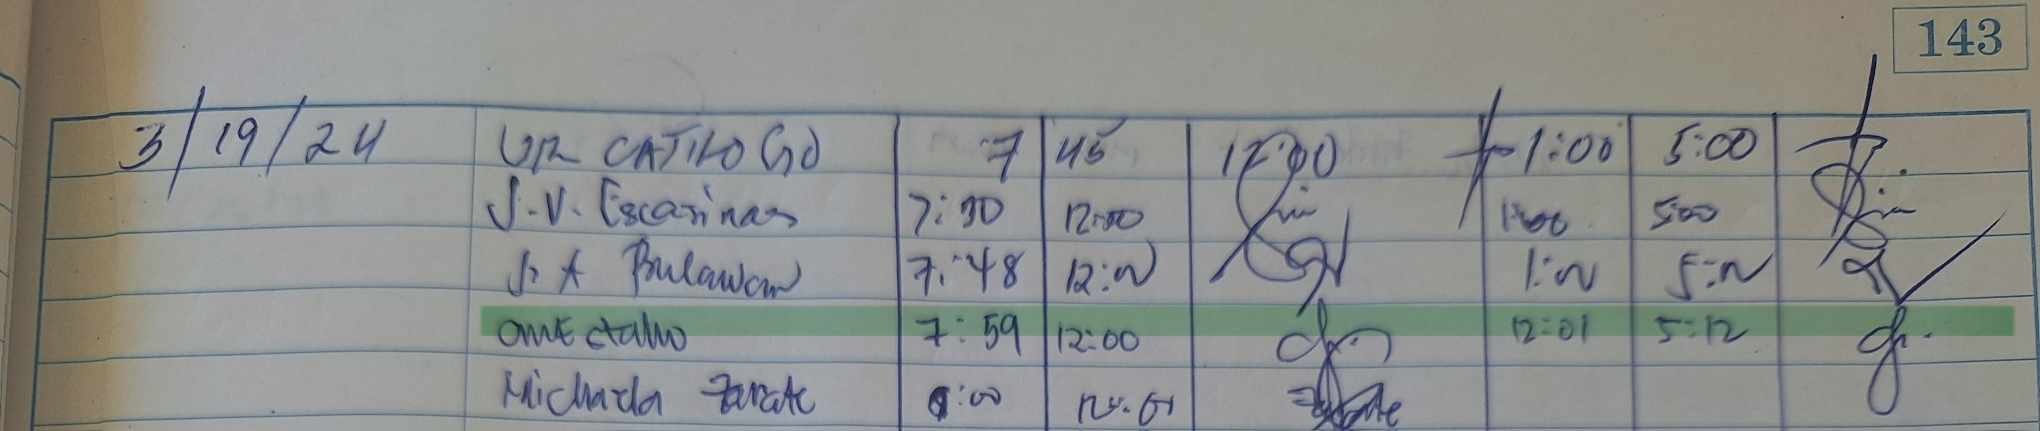 143
3/19/24 VR CATILOGO 7 45 12:00 1:00 5:00
J.V. Escarinas 7:30 12:00 1:00 5:00
J. A Bulawan 7:48 12:00 1:00 5:00
7:59 12:00 12:01 5:12
Michaela Zarate :00 12:01